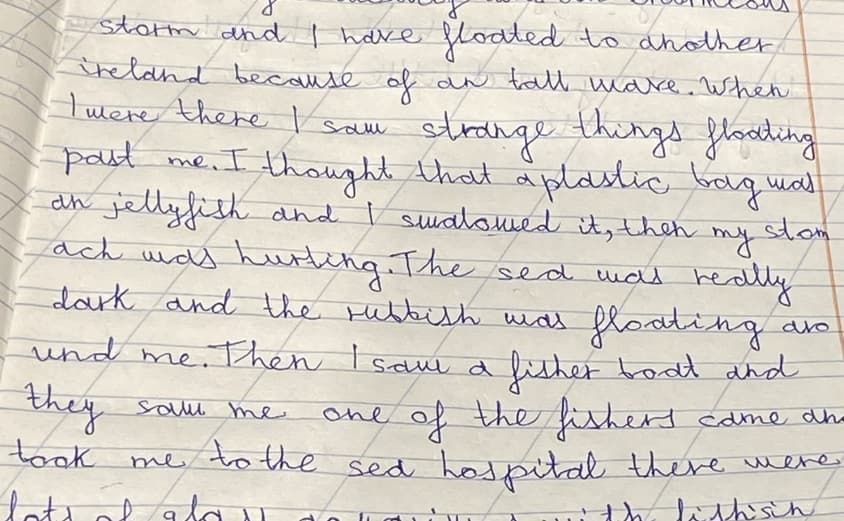 storm and I have floated to another
ireland because of an tall wave. When
I were there I saw strange things floating
past me. I thought that a plastic bag was
an jellyfish and I swalowed it, then my stom
ach was hurting. The sea was really
dark and the rubbish was floating aro
und me. Then I saw a fisher boat and
they saw me one of the fishers came an
took me to the sea hospital there were
lots of